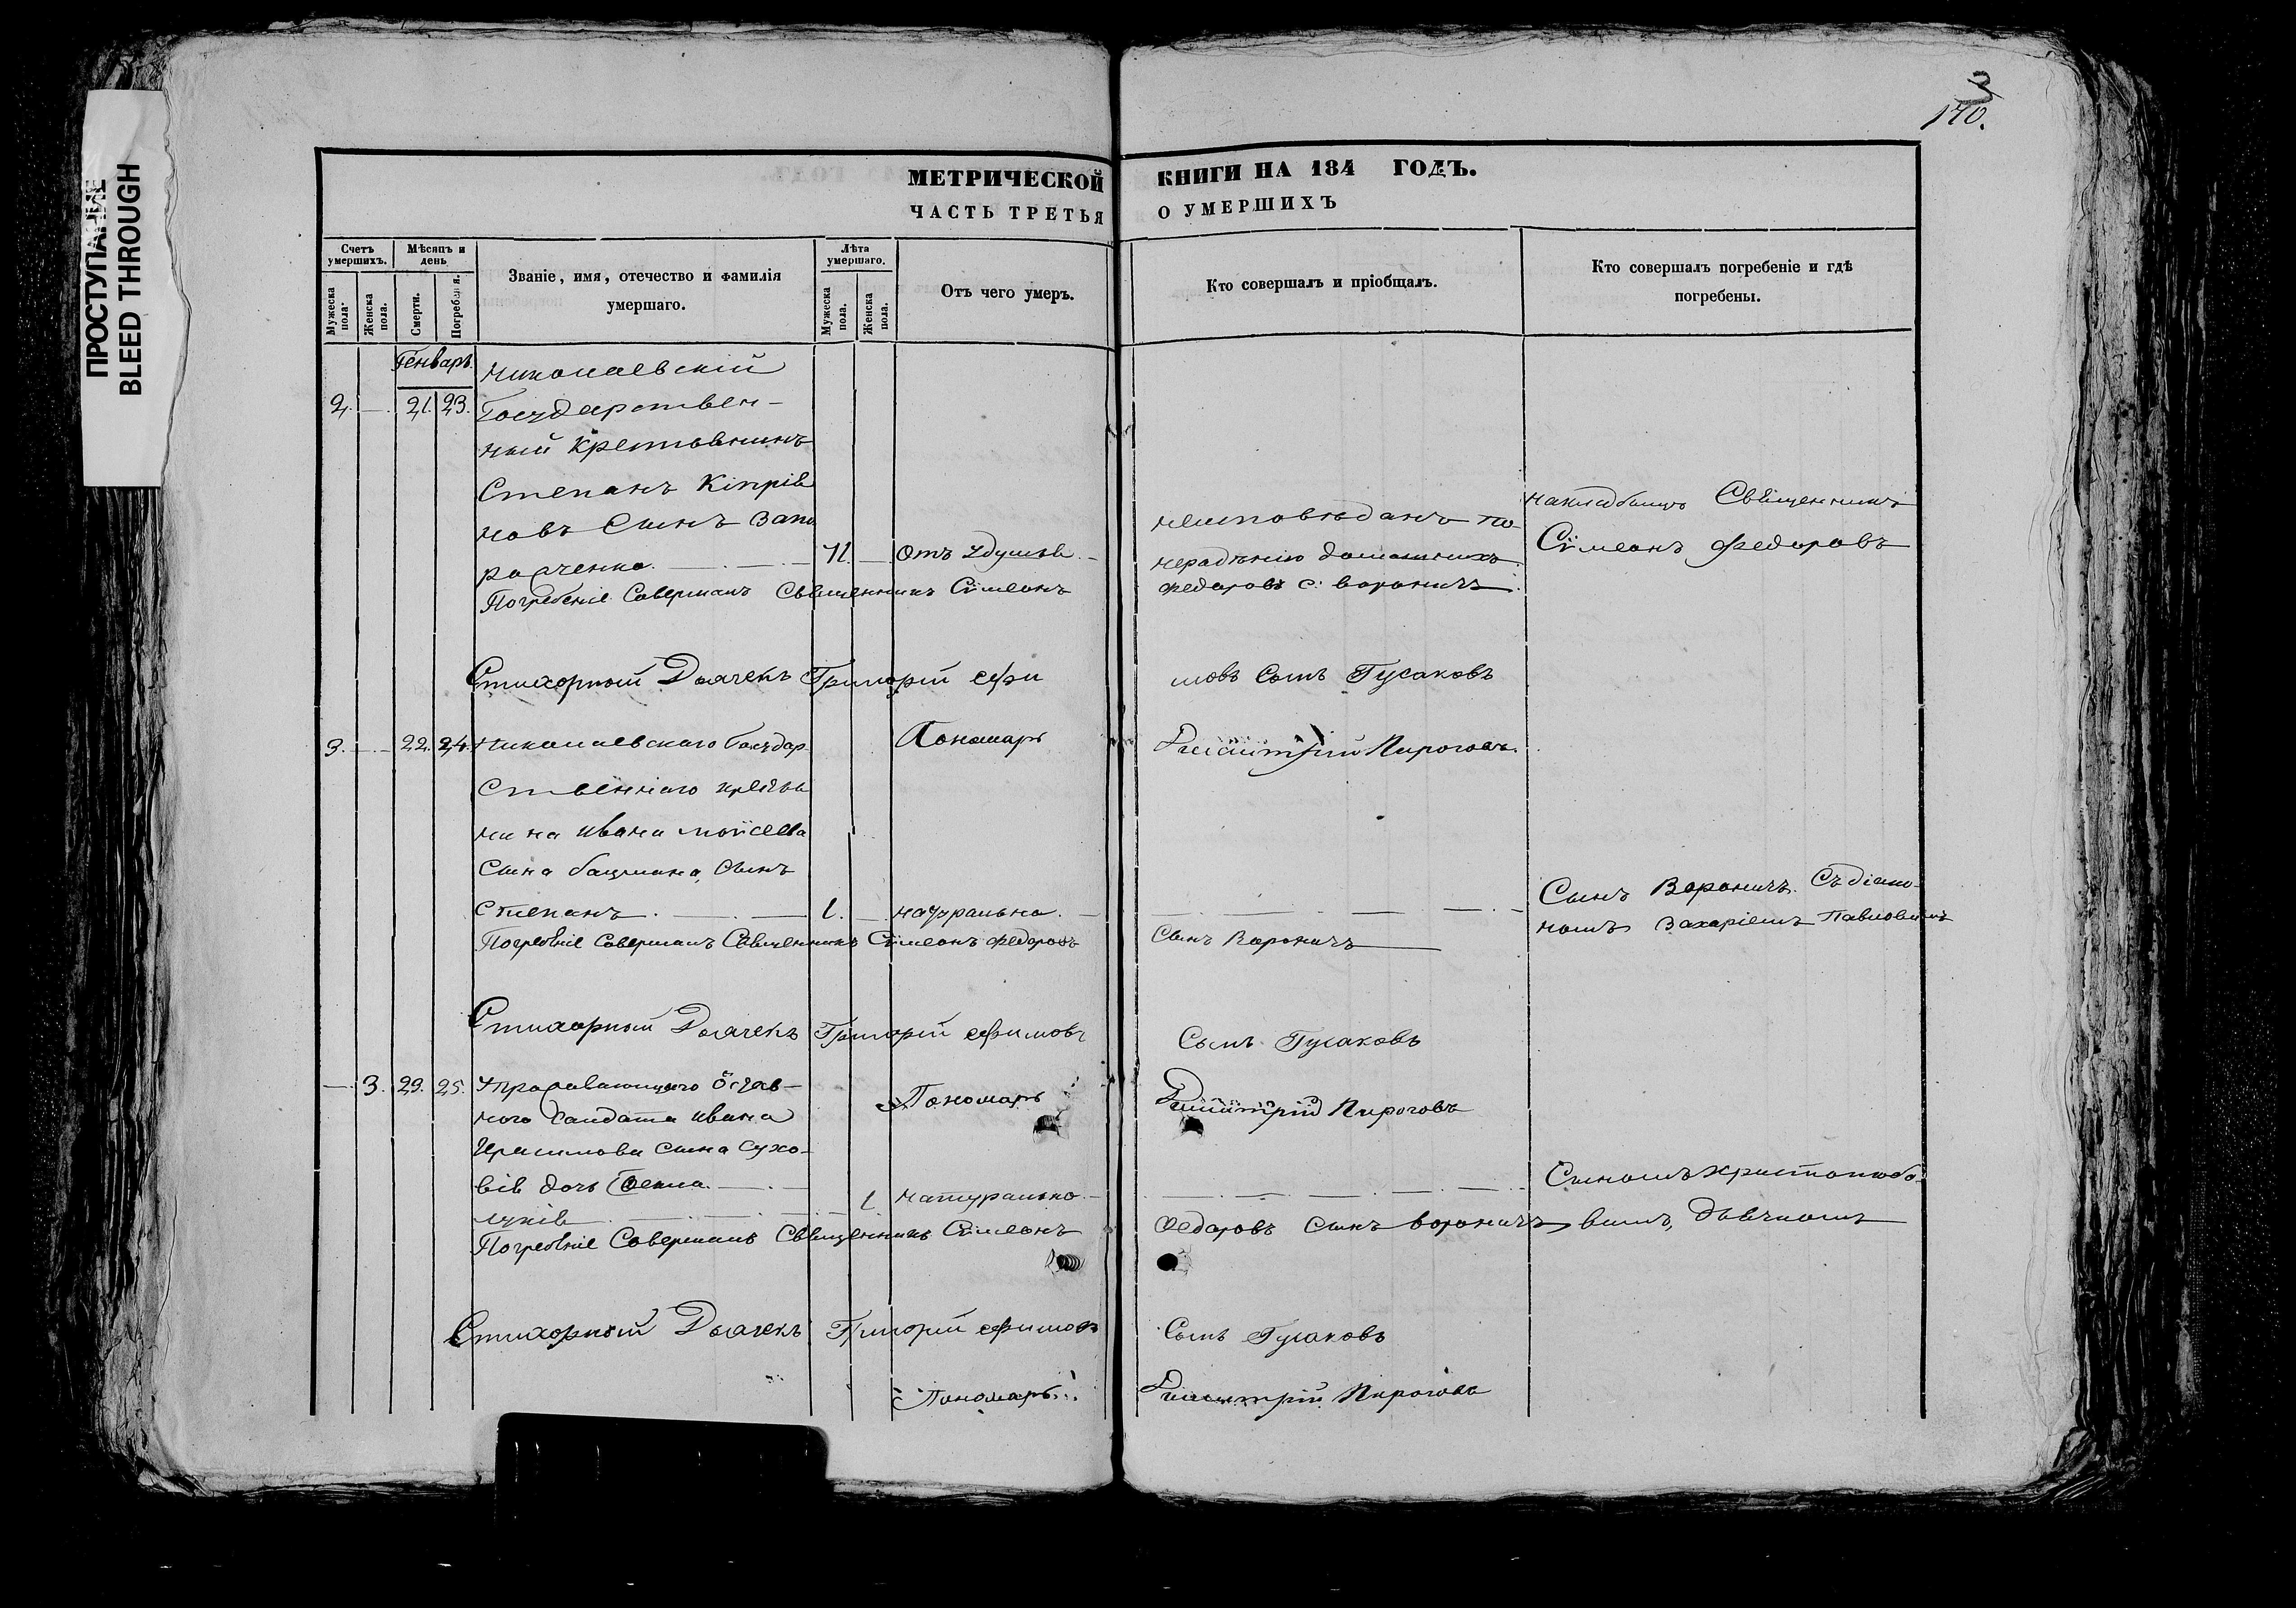 ПРОСТУПАНИЕ
BLEED THROUGH
3
170.
МЕТРИЧЕСКОЙ КНИГИ НА 184 ГОДЪ.
ЧАСТЬ ТРЕТЬЯ О УМЕРШИХЪ
Счетъ умершихъ.
Мужеска пола.
Женска пола.
Мѣсяцъ и день
Смерти.
Погребенія.
Званіе, имя, отечество и фамилія
умершаго.
Лѣта умершаго.
Мужеска пола.
Женска пола.
Отъ чего умеръ.
Кто совершалъ и пріобщалъ.
Кто совершалъ погребеніе и гдѣ
погребены.
Генварь.
Николаевскій
2. — 21. 23. Государствен-
ный Крестьянинъ
Степанъ Кіпрія
новъ Сынъ Запо
рожченко. 71. — Отъ Удушья —
неисповѣданъ по
нерадѣнію домашнихъ.
Священникъ
Сімеонъ Федоровъ
Погребеніе Совершалъ Священникъ Сімеонъ Федоровъ с: вороничъ.
Стихорный Дьячекъ Григорій Ефи мовъ Сынъ Гусаковъ
Пономарь Димитрій Пироговъ.
3. — 22. 24. Николаевскаго Государ
ственнаго крестья
нина Ивана Моисеева
Сына бацмана, Сынъ
Степанъ. — 1. — натурально. —
Сынъ Вороничъ. Съ діако-
номъ Захаріемъ Павловымъ
Погребеніе Совершалъ Священникъ Сімеонъ Федоровъ Сынъ Вороничъ
Стихорный Дьячекъ Григорій Ефимовъ Сынъ Гусаковъ
Пономарь Димитрій Пироговъ
— 3. 23. 25. Отстав-
ного Салдата Ивана
Герасимова сына Сухо-
вія дочь
1 натурально. —
Сыномъ Христолюбо-
вымъ, дьячкомъ
Погребеніе Совершалъ Священникъ Сімеонъ Федоровъ Сынъ вороничъ
Стихорный Дьячекъ Григорій Ефимовъ Сынъ Гусаковъ
Пономарь Димитрій Пироговъ